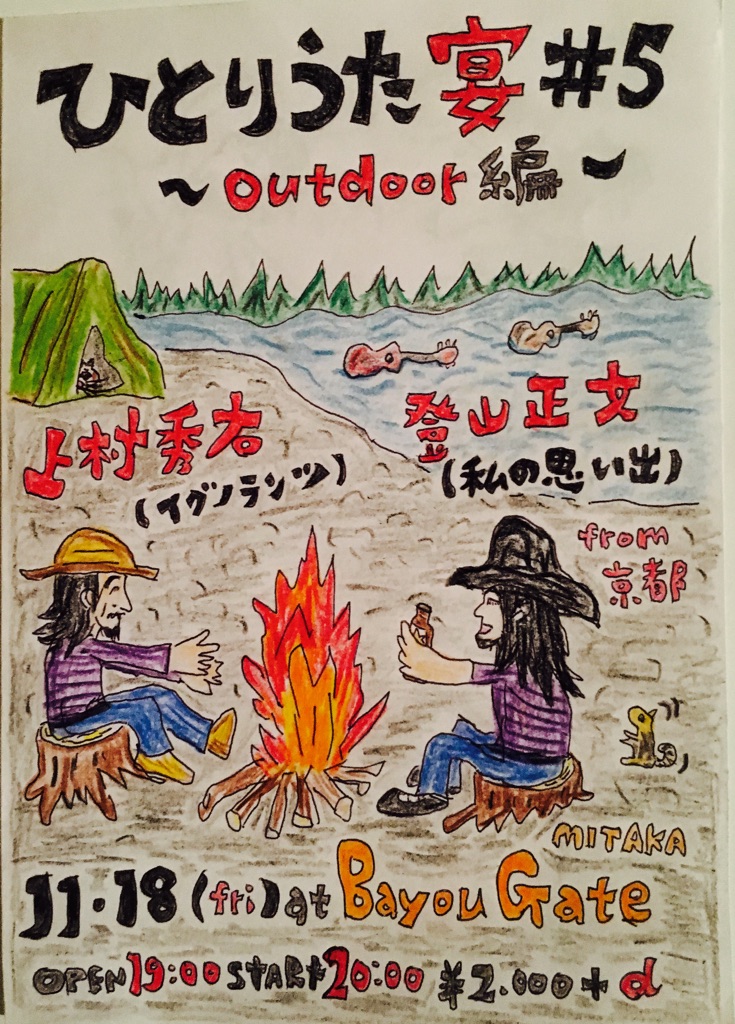 ひとりうた宴#5
~outdoor編~
上村秀右
(イグノランツ)
登山正文
(私の思い出)
from
京都
MITAKA
11・18(fri)at Bayou Gate
OPEN19:00 START20:00 ¥2.000+d